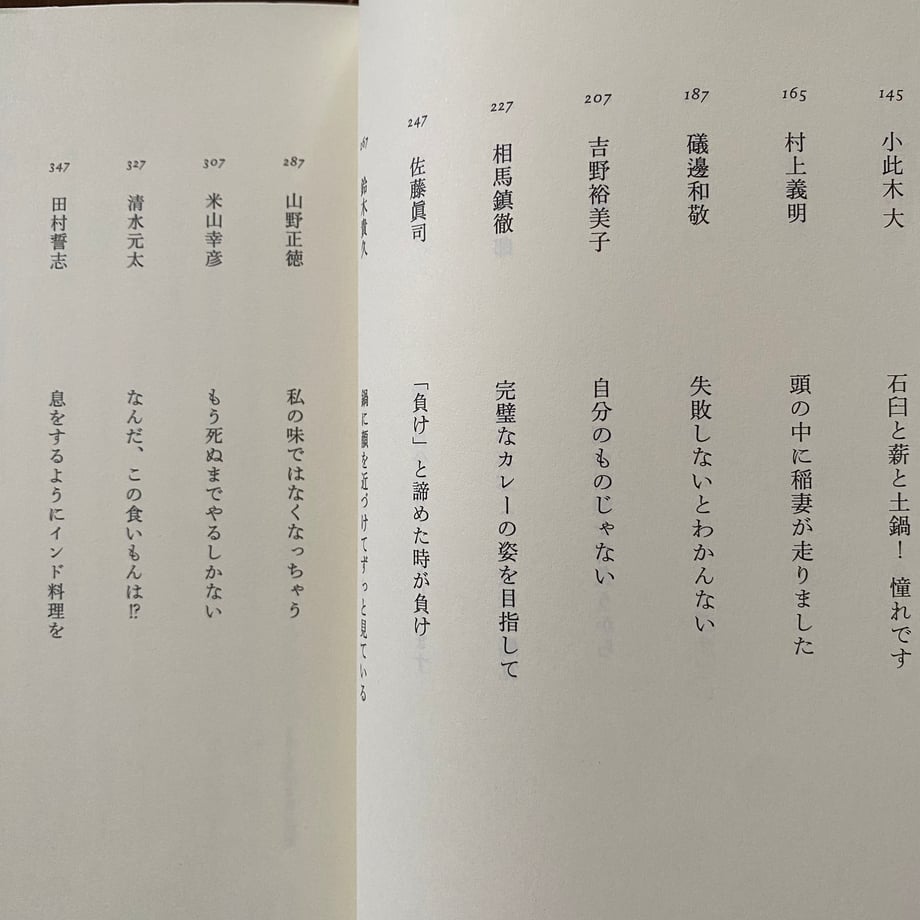 145 小此木 大 石臼と薪と土鍋！ 憧れです
165 村上義明 頭の中に稲妻が走りました
187 礒邉和敬 失敗しないとわかんない
207 吉野裕美子 自分のものじゃない
227 相馬鎮徹 完璧なカレーの姿を目指して
247 佐藤眞司 「負け」と諦めた時が負け
267 鈴木貴久 鍋に顔を近づけてずっと見ている
287 山野正徳 私の味ではなくなっちゃう
307 米山幸彦 もう死ぬまでやるしかない
327 清水元太 なんだ、この食いもんは!?
347 田村誓志 息をするようにインド料理を